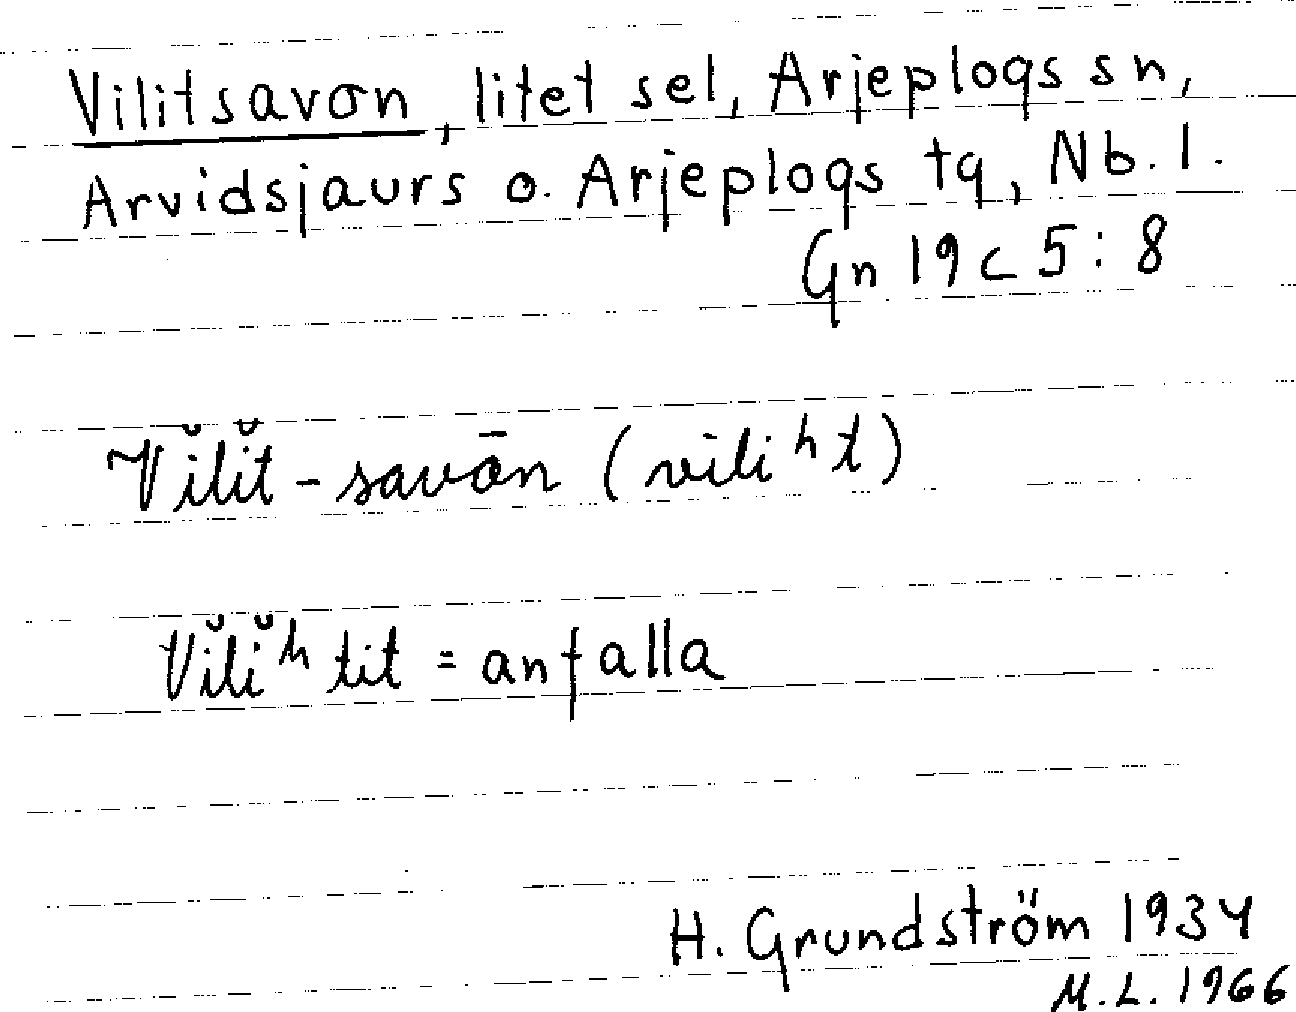 Vilitsavon, litet sel, Arjeplogs sn,
Arvidsjaurs o. Arjeplogs tg, Nb. l.
Gn 19 c 5:8
Vĭlĭt-savōn (viliʰt)
Vĭlĭʰtit = anfalla
H. Grundström 1934
M.L. 1966